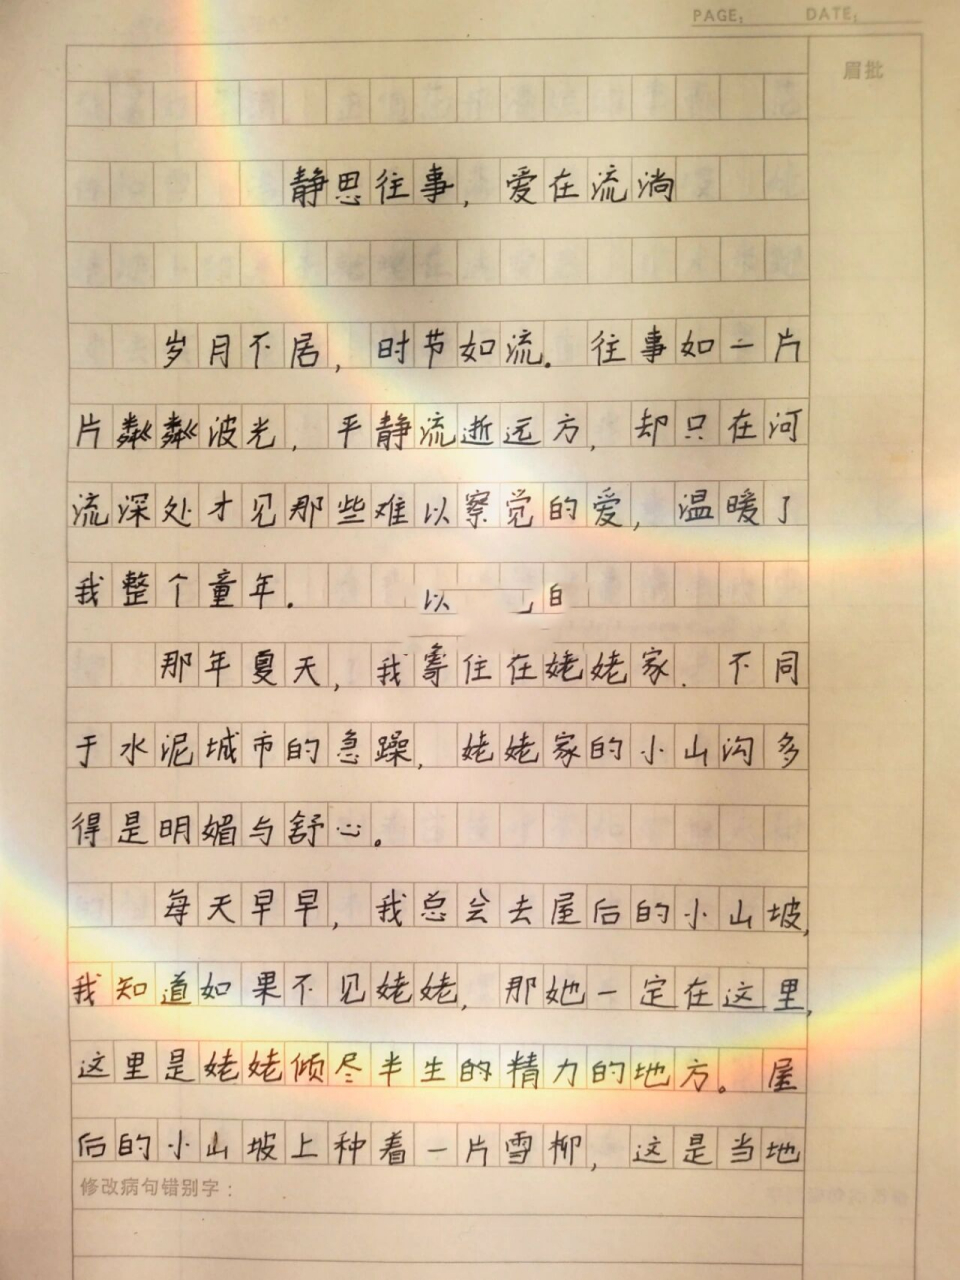 PAGE: DATE:
眉批
静思往事，爱在流淌
岁月不居，时节如流。往事如一片
片粼粼波光，平静流逝远方，却只在河
流深处才见那些难以察觉的爱，温暖了
我整个童年。
以
那年夏天，我寄住在姥姥家．不同
于水泥城市的急躁，姥姥家的小山沟多
得是明媚与舒心。
每天早早，我总会去屋后的小山坡，
我知道如果不见姥姥，那她一定在这里，
这里是姥姥倾尽半生的精力的地方。屋
后的小山坡上种着一片雪柳，这是当地
修改病句错别字：